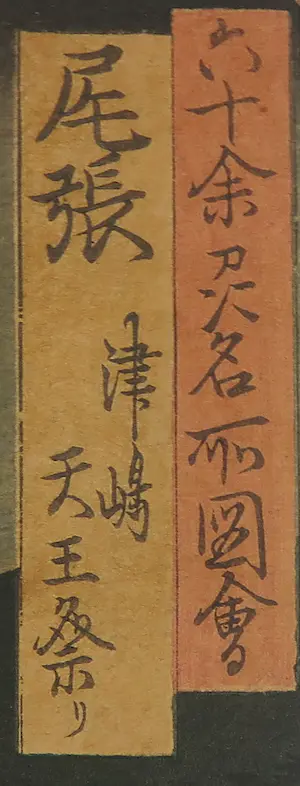 六十余州名所圖會
尾張
津嶋
天王祭り